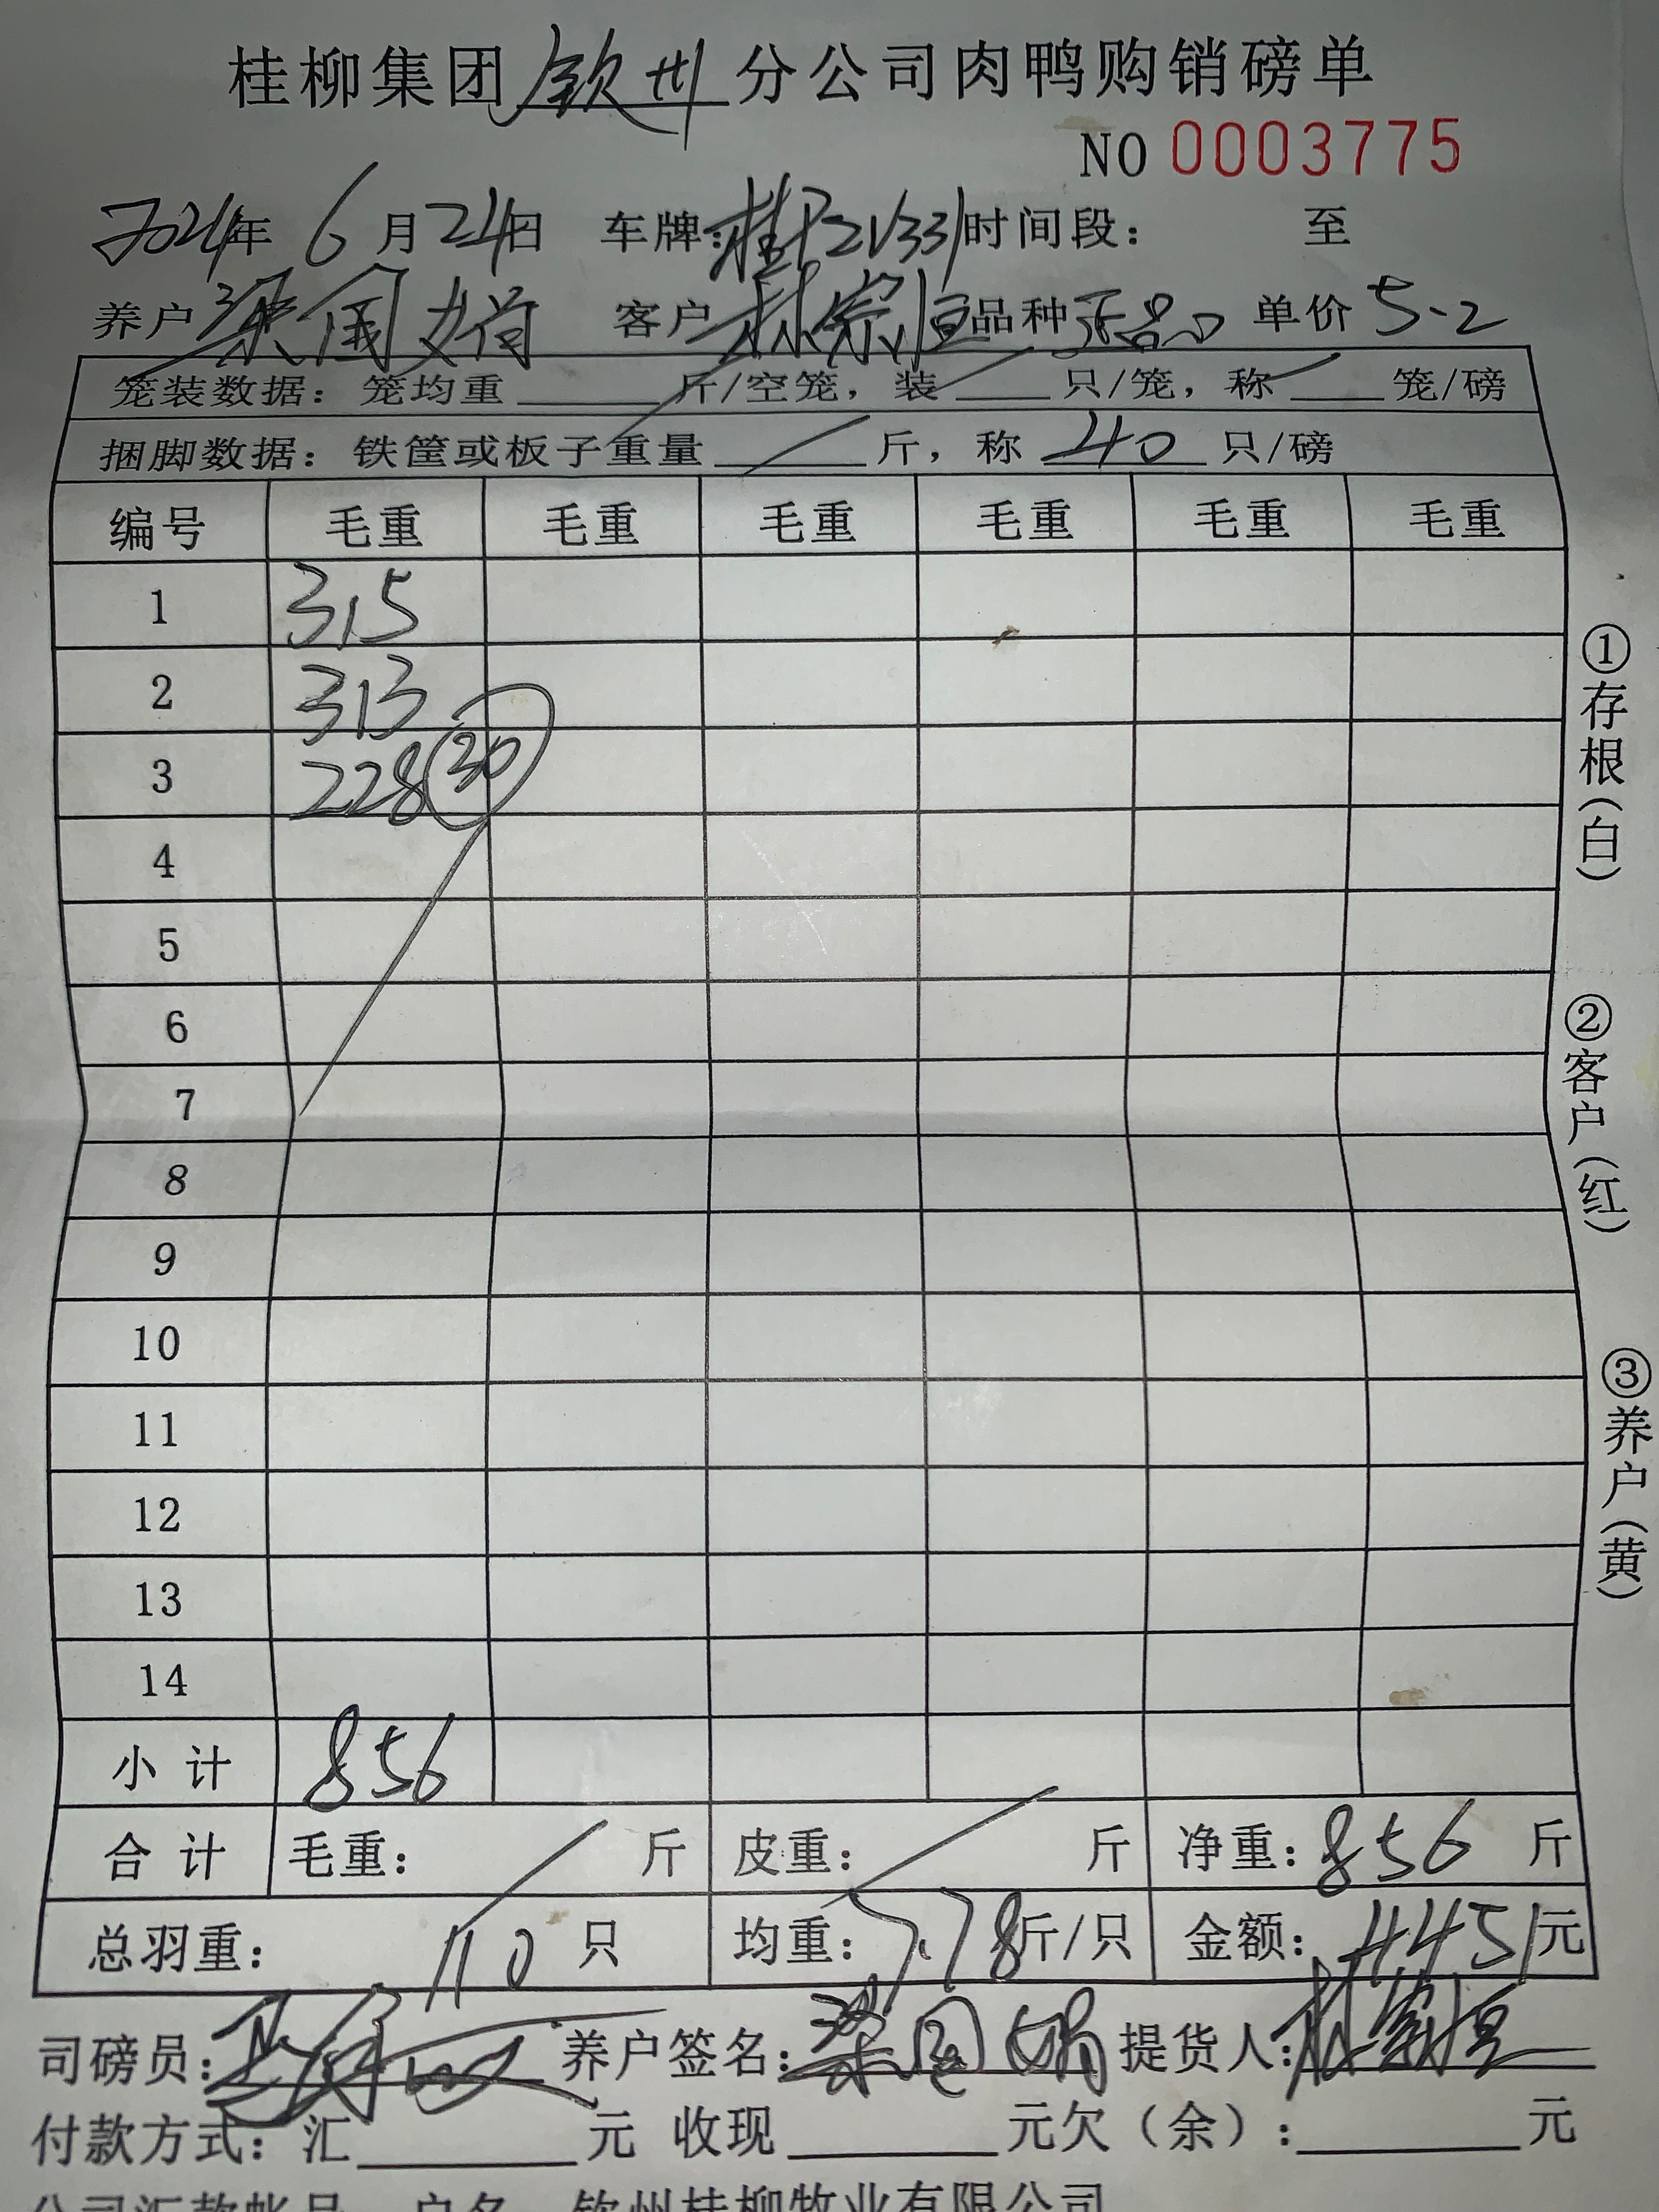 桂柳集团钦州分公司肉鸭购销磅单
NO 0003775
2024年 6月24日 车牌:桂P2V331时间段: 至
养户 梁国娟 客户 林宗恒 品种 正品 单价 5.2
笼装数据: 笼均重 斤/空笼, 装 只/笼, 称 笼/磅
捆脚数据: 铁筐或板子重量 斤, 称 40 只/磅
编号 毛重 毛重 毛重 毛重 毛重 毛重
1 315
2 313
3 228 (30)
4
5
6
7
8
9
10
11
12
13
14
小计 856
合计 毛重: 斤 皮重: 斤 净重: 856 斤
总羽重: 110 只 均重: 7.78斤/只 金额: 4451元
司磅员: 养户签名: 梁国娟 提货人: 林宗恒
付款方式: 汇 元 收现 元欠(余): 元
公司汇款帐号 户名 钦州桂柳牧业有限公司
①存根(白)
②客户(红)
③养户(黄)